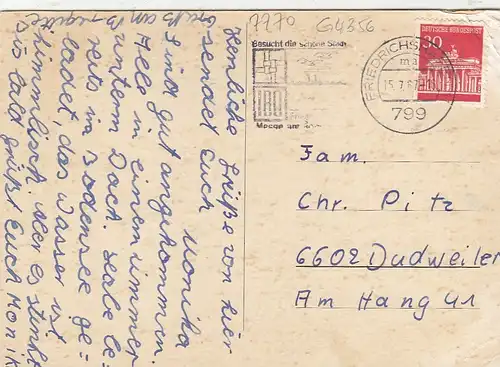 7770 G4356
Besucht die schöne Stadt
IBO
Messe am
FRIEDRICHS
15.7.67
799
30
DEUTSCHE BUNDESPOST
Herzliche Grüße von hier
sendet Euch Monika
Sind gut angekommen.
Alle in einem Zimmer
unterm Dach. Habe be=
reits im Bodensee ge=
badet, das Wasser ist
himmlisch. Aber es stinkt
Bis bald grüßt Euch Monik
Fam.
Chr. Pitz
6602 Dudweiler
Am Hang 41